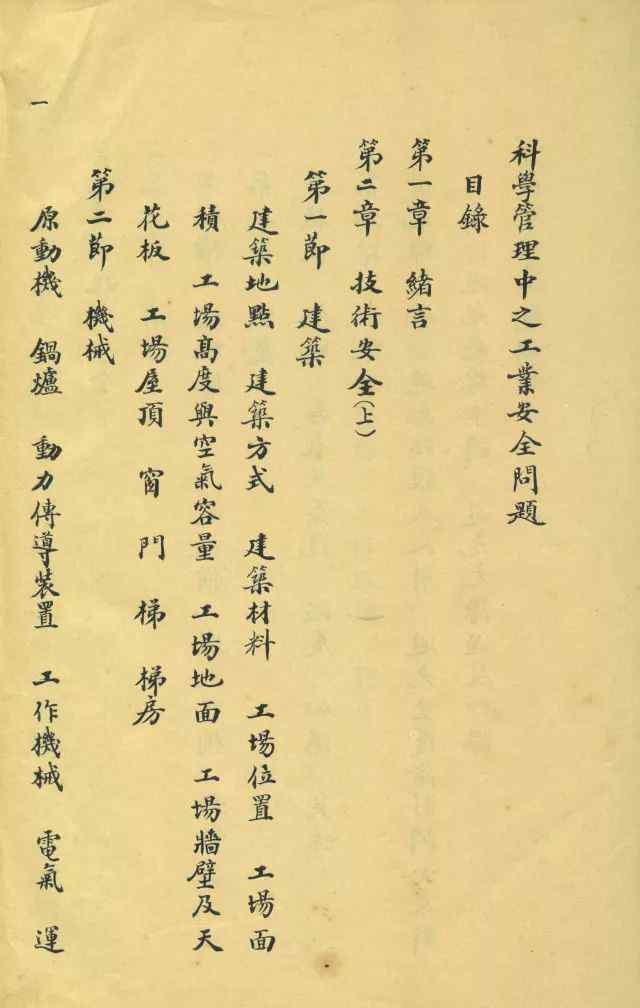 科學管理中之工業安全問題
目錄
第一章　緒言
第二章　技術安全（上）
第一節　建築
建築地點　建築方式　建築材料　工場位置　工場面
積　工場高度與空氣容量　工場地面　工場牆壁及天
花板　工場屋頂　窗　門　梯　梯房
第二節　機械
原動機　鍋爐　動力傳導裝置　工作機械　電氣　運
一